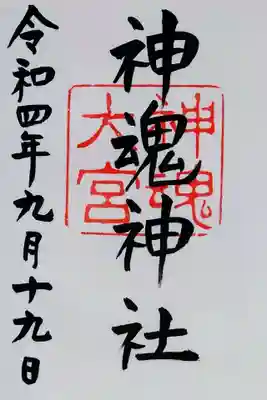 神魂神社
神魂
大宮
令和四年九月十九日